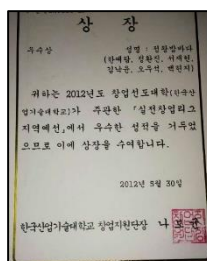 상 장
우수상 성명 : 선창밤바다
위하는 2012년도 창업선도대학(한국산
업기술대학교)가 주관한 「실전창업리그
지역예선」에서 우수한 성적을 거두었
으므로 이에 상장을 수여합니다.
2012년 5월 30일
한국산업기술대학교 창업지원단장 나